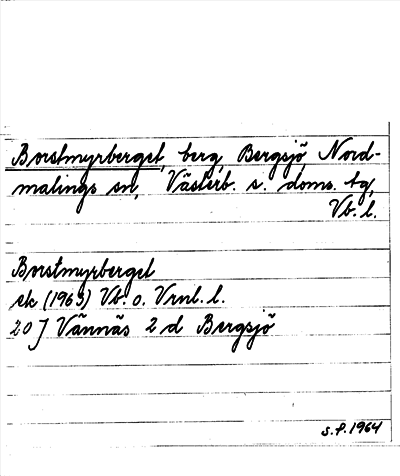 Borstmyrberget, berg, Bergsjö, Nord-
malings sn, Västerb. s. doms. tg,
Vb. l.
Borstmyrberget
ek (1963) Vb. o. Vrnl. l.
20 J Vännäs 2 d Bergsjö
S.P. 1964